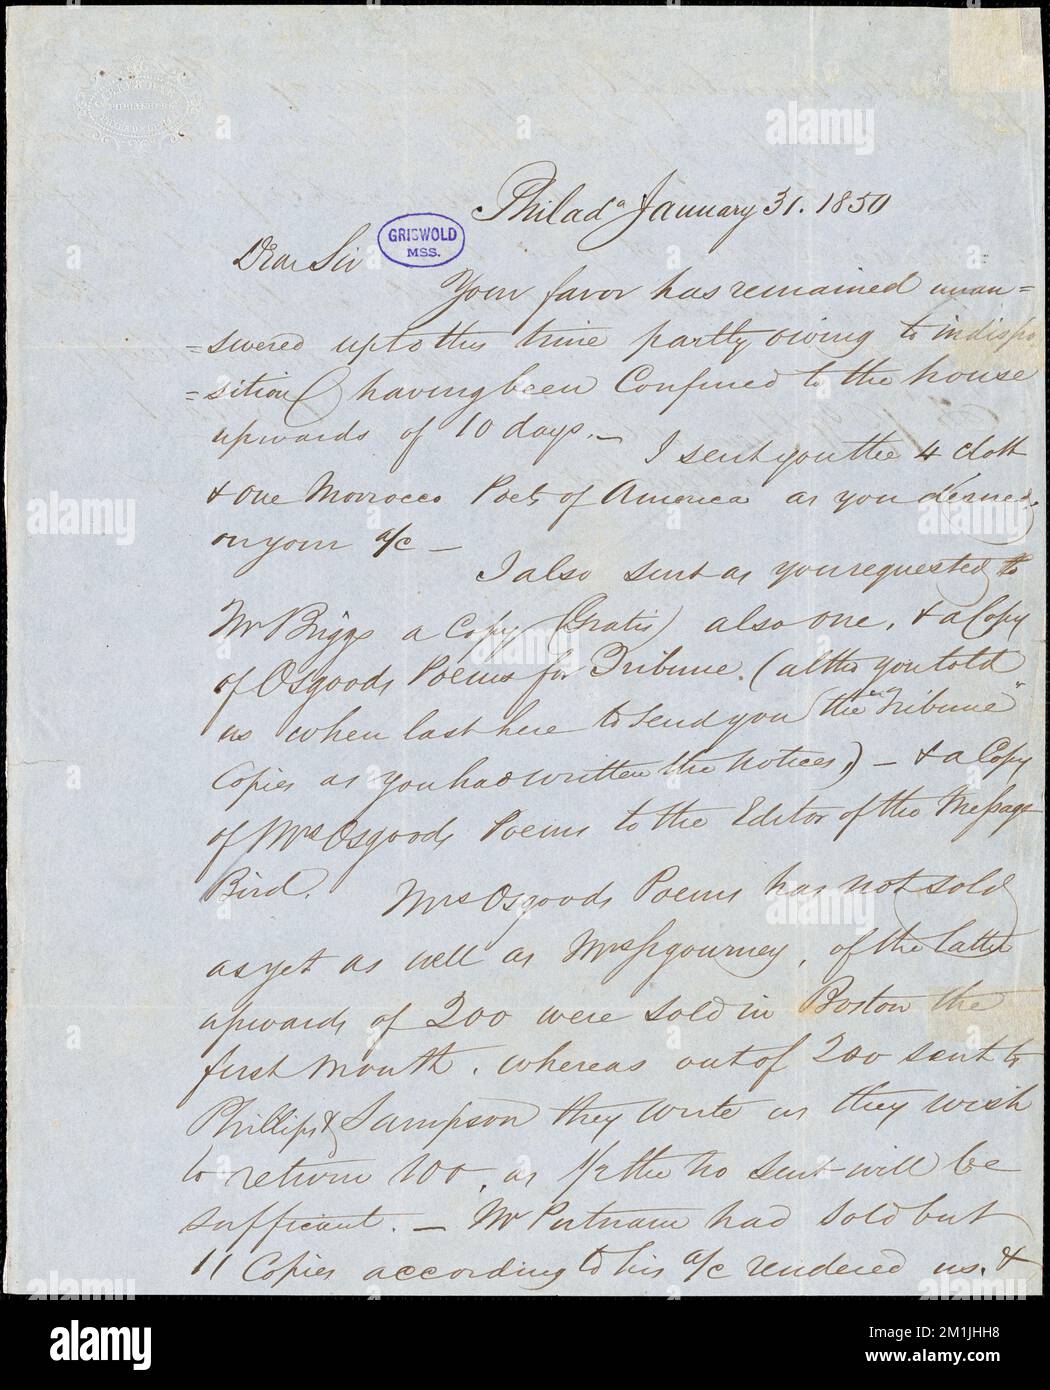 Philada January 31. 1850
GRISWOLD
MSS.
Dear Sir
Your favor has remained unan=
=swered up to this time partly owing to indispo
=sition, having been Confined to the house
upwards of 10 days. —
I sent you the 4 cloth
& one Morrocco Poets of America as you desired
on your a/c —
I also sent as you requested to
Mr Briggs a copy (Gratis) also one, & a Copy
of Osgoods Poems for Tribune. (altho you told
us when last here to send you the "Tribune"
Copies as you had written the notices,) — & a Copy
of Mrs Osgoods Poems to the Editor of the Message
Bird.
Mrs Osgoods Poems has not sold
as yet as well as Mrs Sigourney, of the latter
upwards of 200 were sold in Boston the
first month, whereas out of 200 sent to
Phillips & Sampson they write us they wish
to return 100, as 1/2 the no sent will be
sufficient. — Mr Putnam had sold but
11 Copies according to his a/c rendered us. &
alamy
alamy
Image ID: 2M1JHH8
www.alamy.com